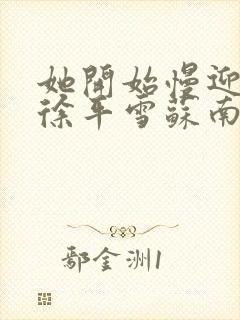 她開始慢迎
徐平雪蘇南
鄢金洲1